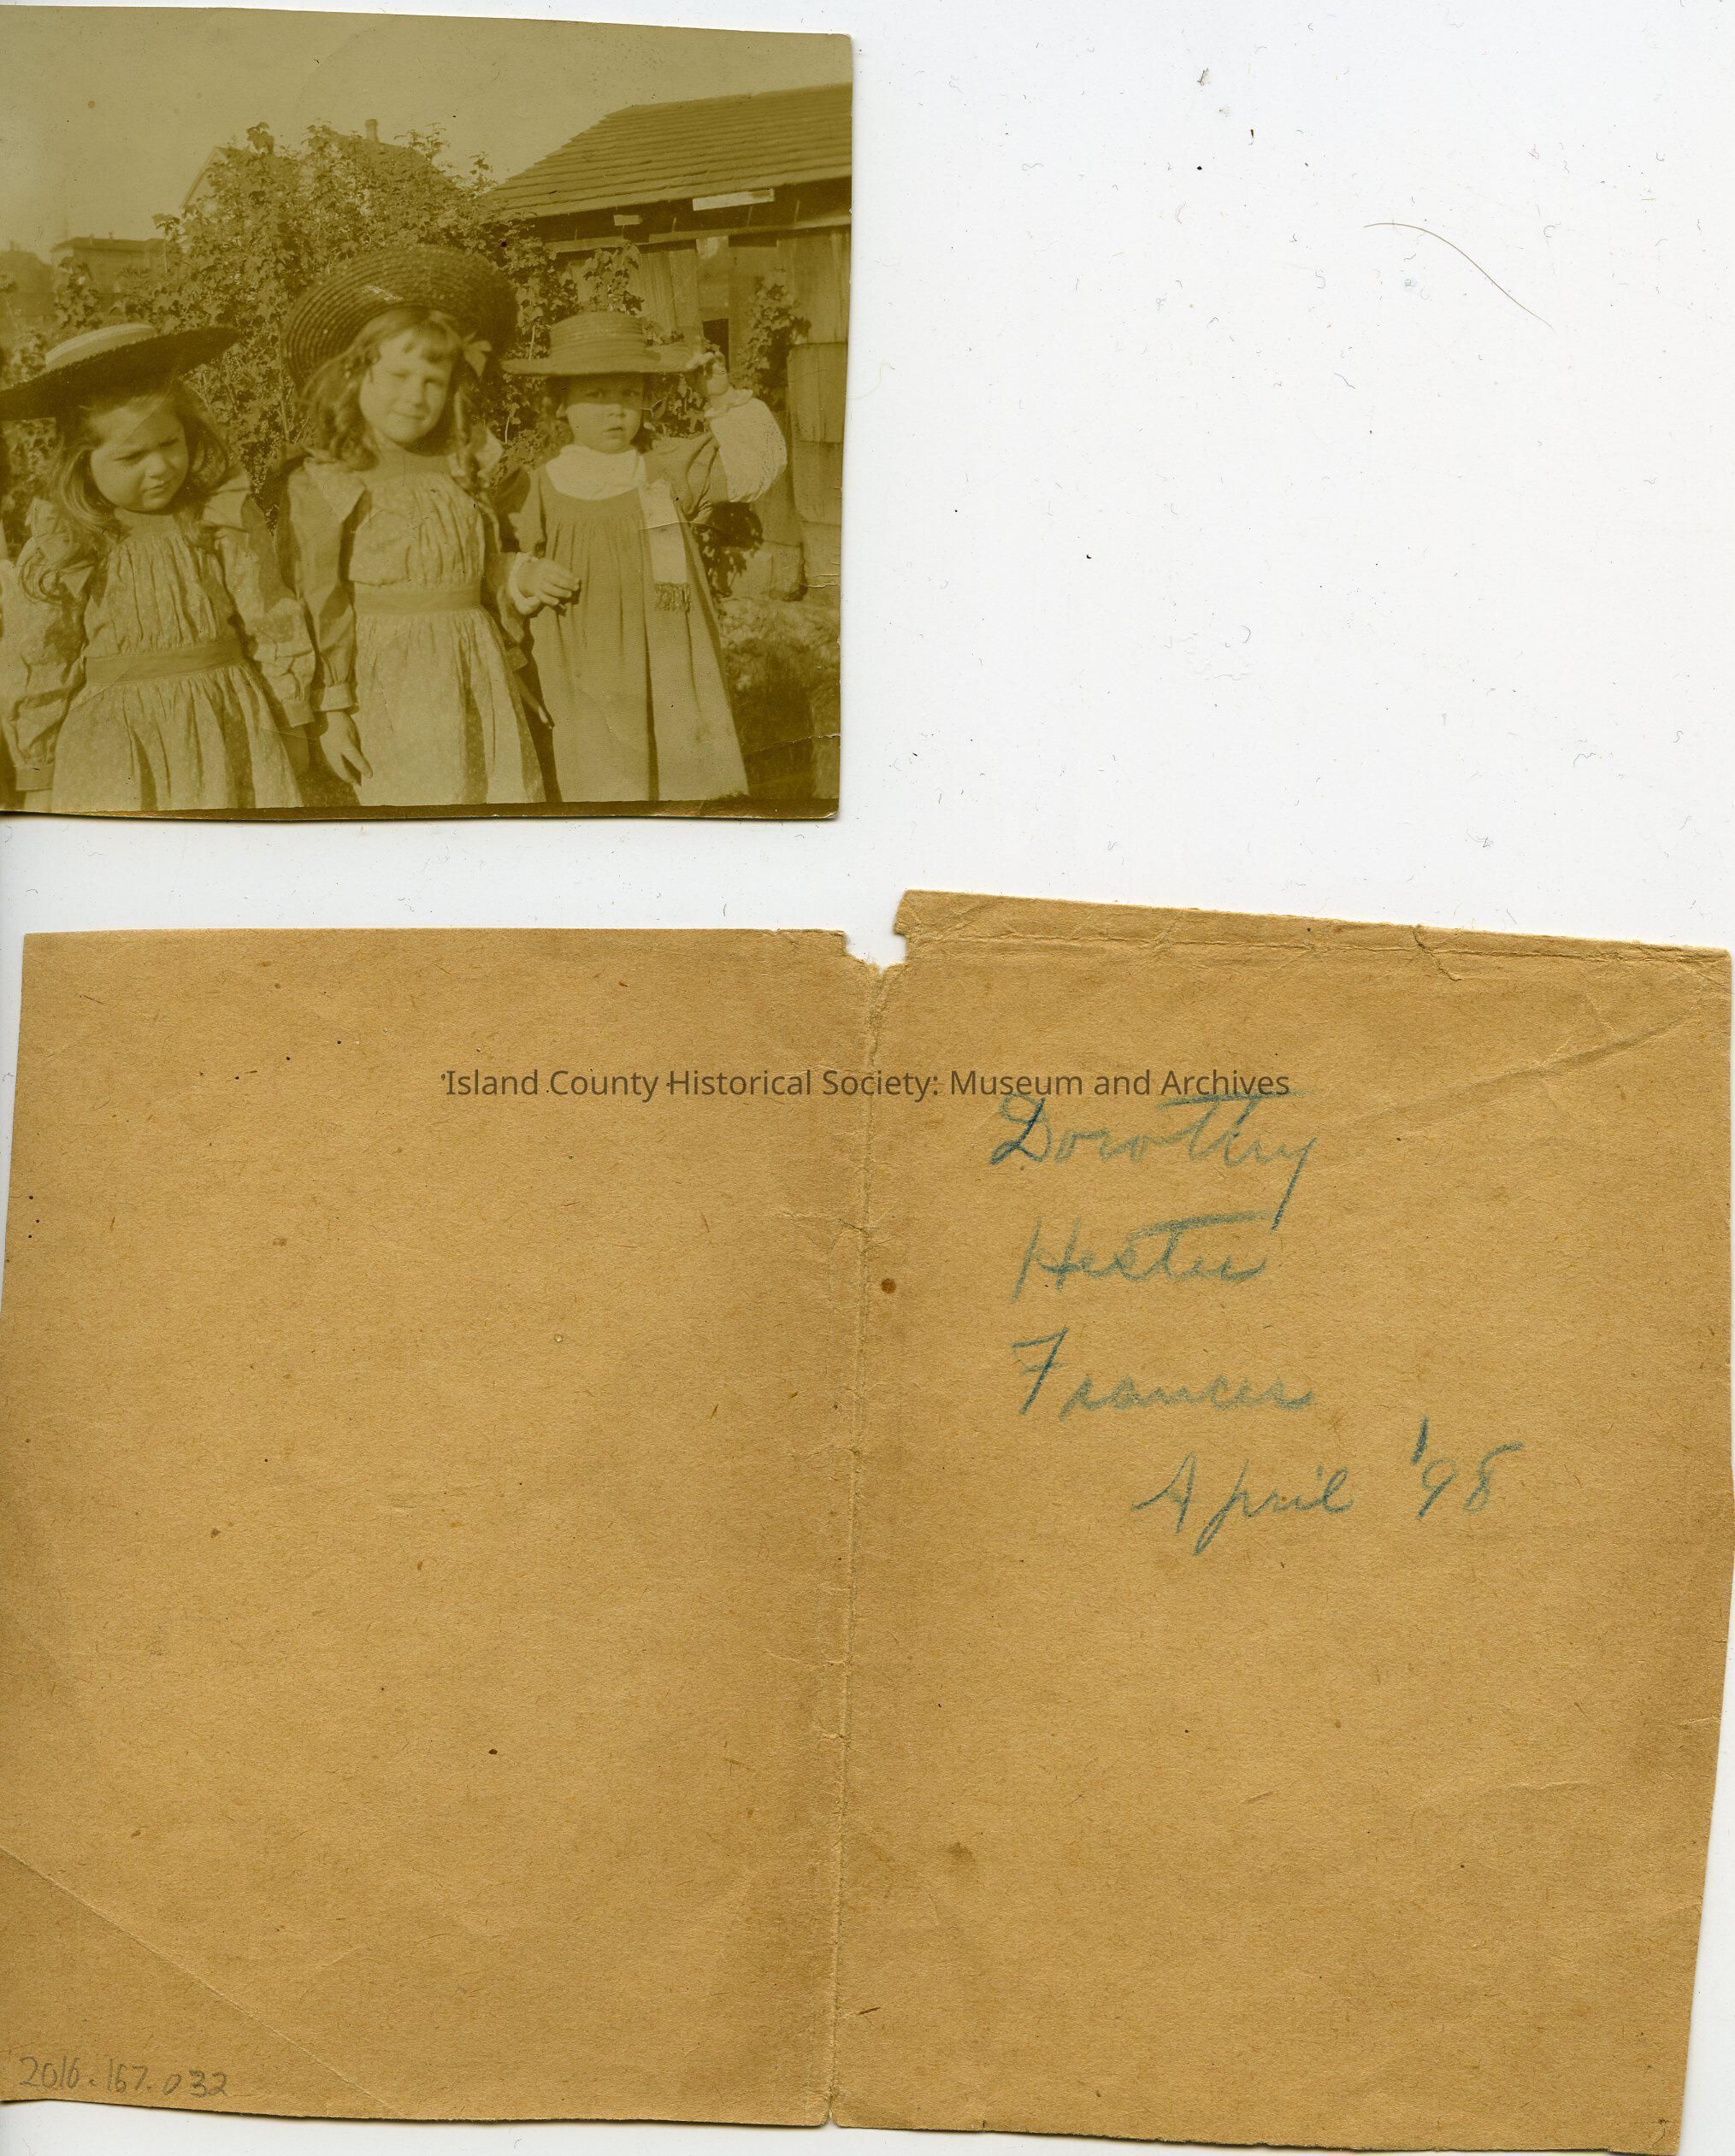 Island County Historical Society: Museum and Archives
Dorothy
Hester
Frances
April '98
2016.167.032